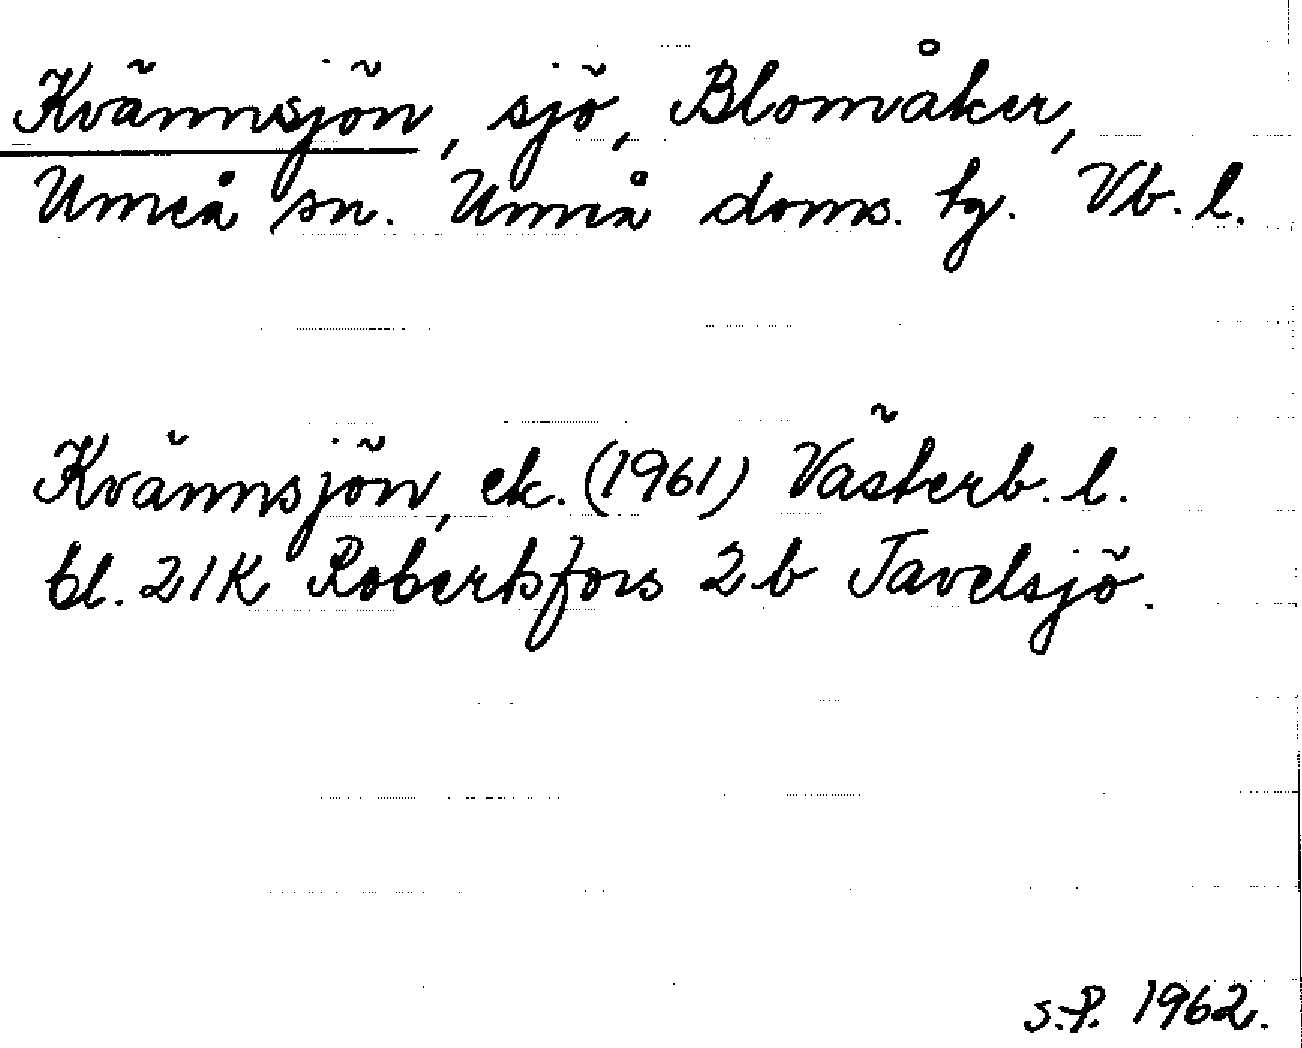 Kvännsjön, sjö, Blomåker,
Umeå sn. Umeå doms. tg. Vb. l.
Kvännsjön, ek. (1961) Västerb. l.
bl. 21K Robertsfors 2b Tavelsjö.
S.P. 1962.